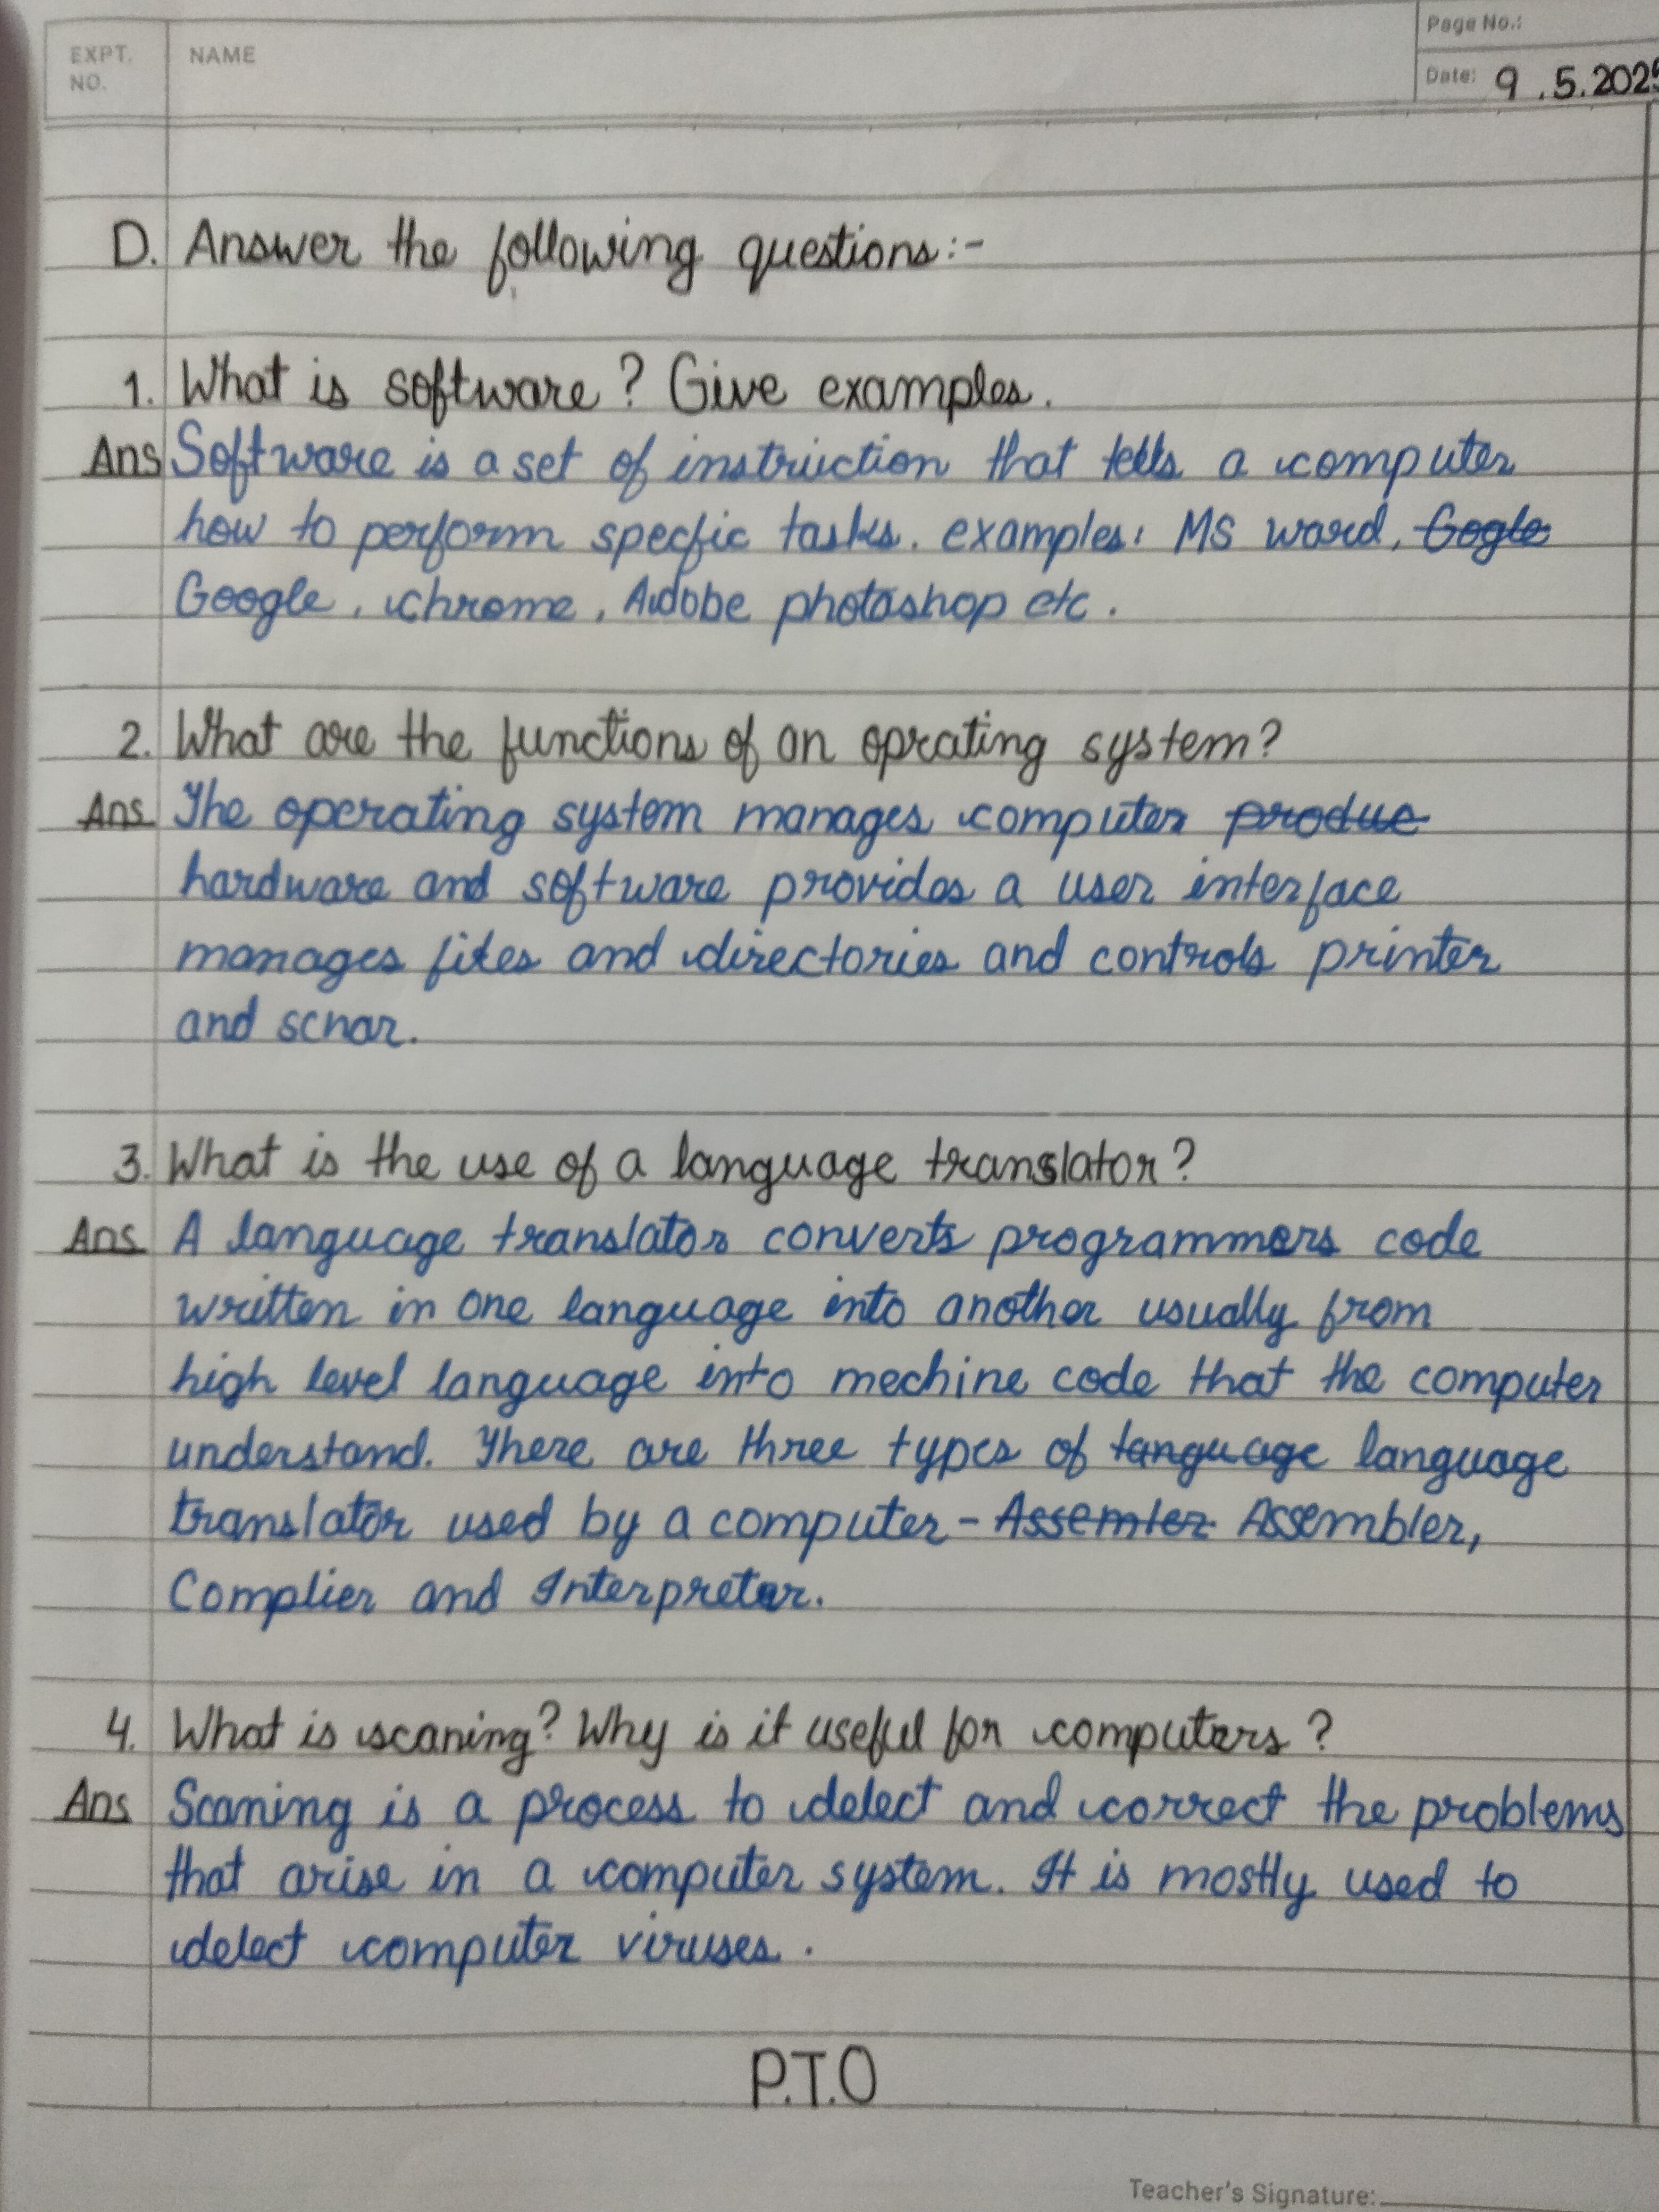 EXPT. NO.
NAME
Page No.:
Date: 9.5.2025
D. Answer the following questions:-
1. What is software? Give examples.
Ans Software is a set of instruction that tells a computer
how to perform specfic tasks. examples: MS ward, Gogle
Google, chrome, Adobe photoshop etc.
2. What are the functions of an oprating system?
Ans The operating system manages computer produc
hardware and software provides a user interface
manages files and directories and controls printer
and scnar.
3. What is the use of a language translator?
Ans A language translator converts programmers code
written in one language into another usually from
high level language into mechine code that the computer
understand. There are three types of language language
translator used by a computer - Assemler Assembler,
Complier and Interpreter.
4. What is scaning? Why is it useful for computers?
Ans Scaning is a process to delect and correct the problems
that arise in a computer system. It is mostly used to
delect computer viruses.
P.T.O
Teacher's Signature: